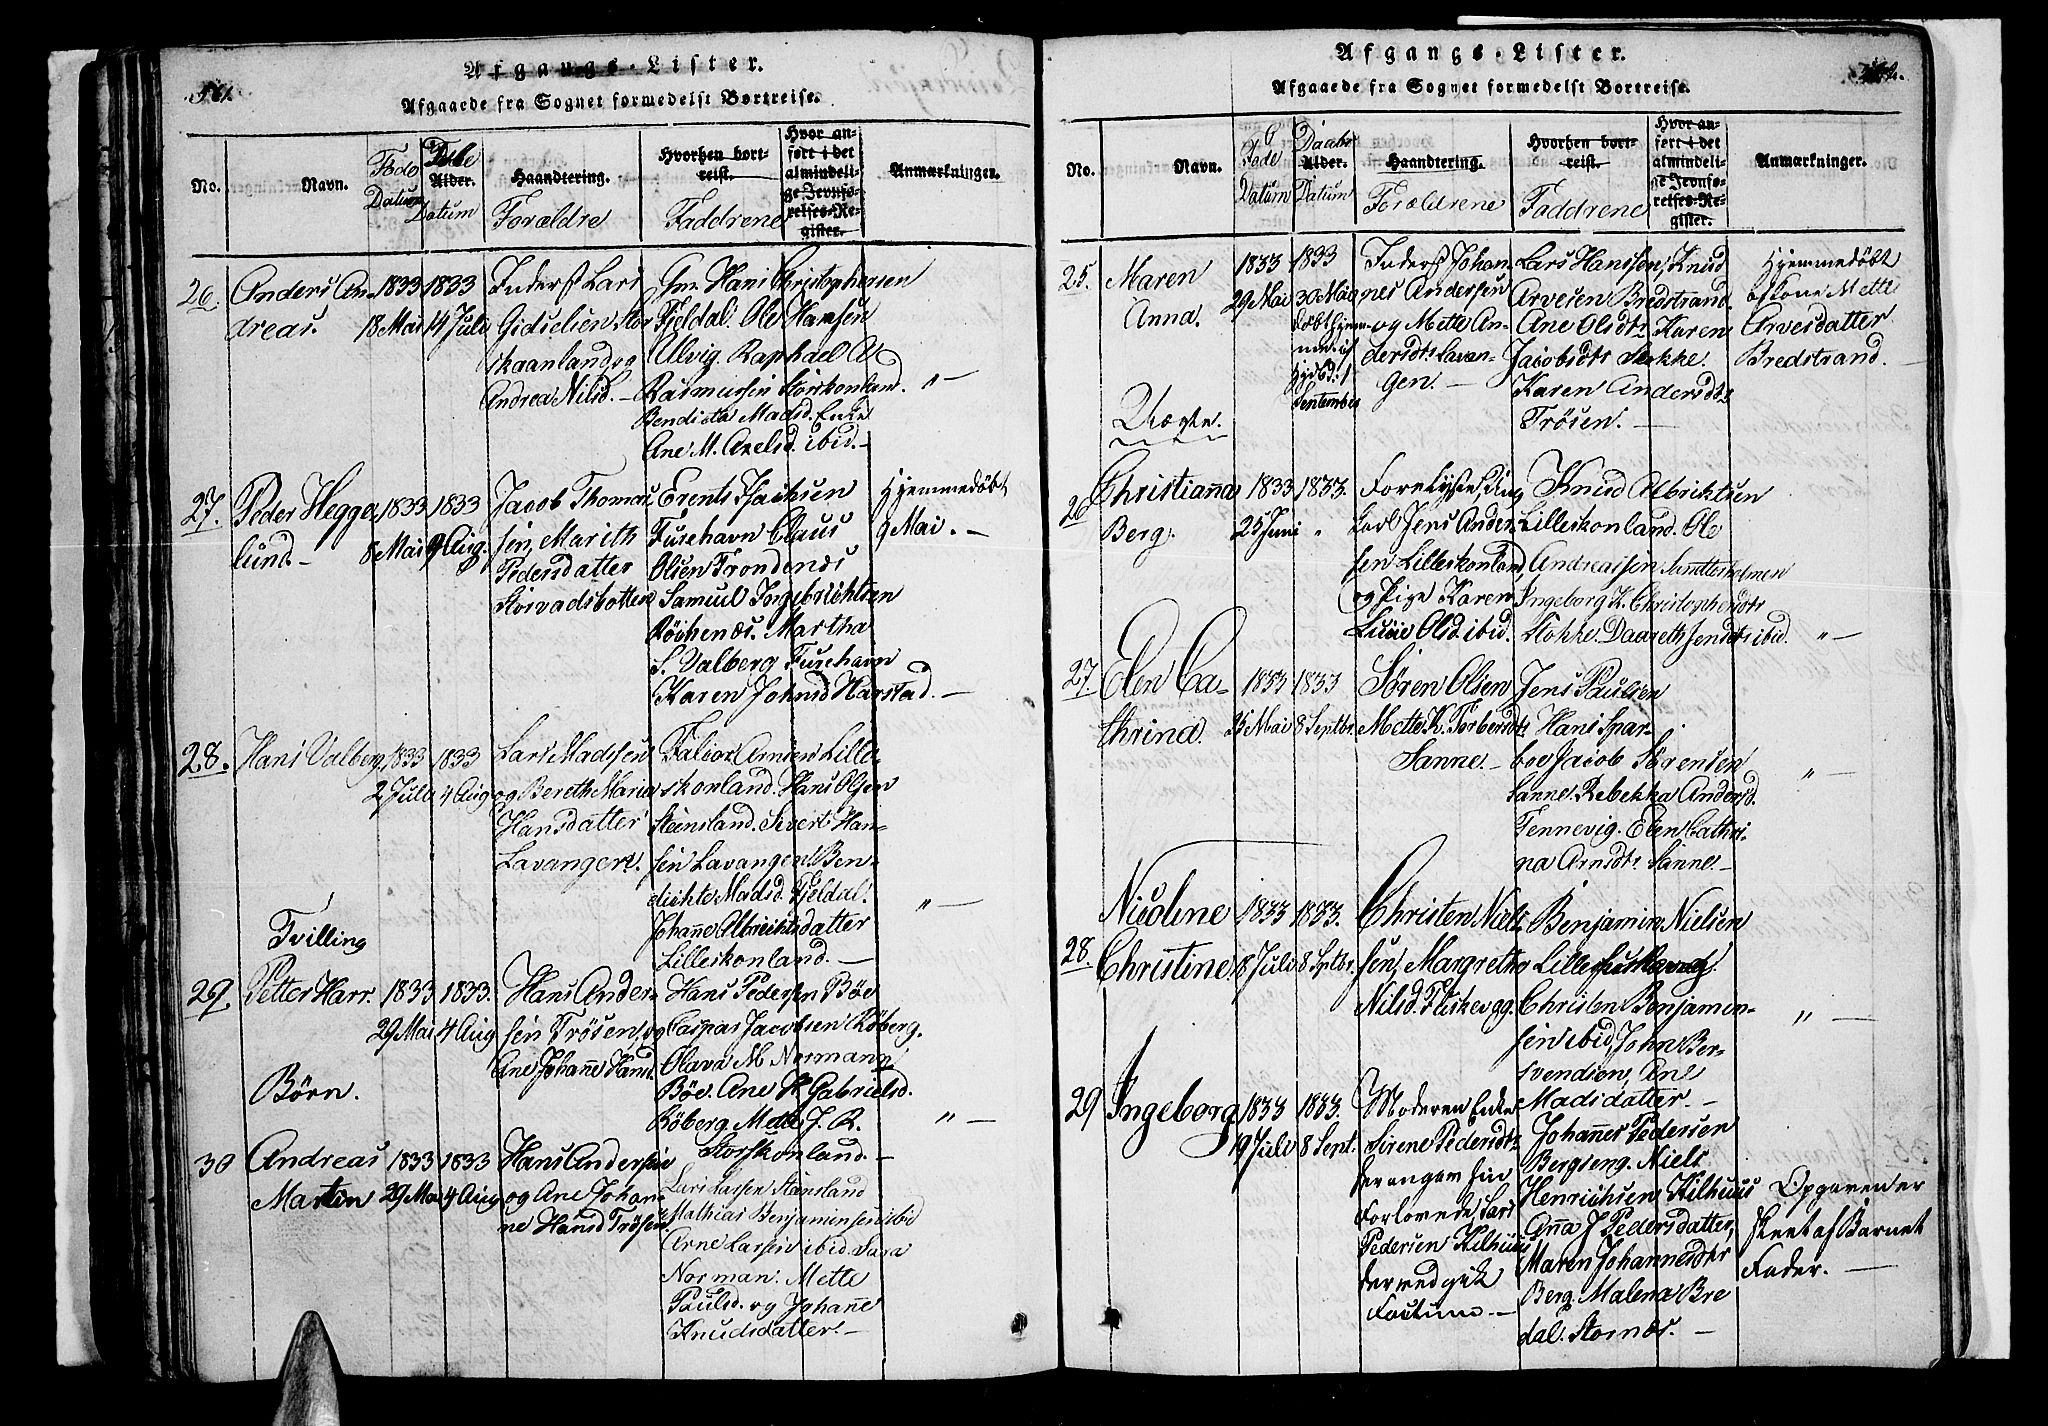 Afgangs-Lister.
Afgaaede fra Sognet formedelst Bortreise.
No.
Navn.
Føde
Datum
Døbe
Alder.
Datum
Haandtering.
Forældre
Hvorhen bort-
reist.
Faddrene
Hvor an-
ført i det
almindeli-
ge Jevnfø-
relses-Re-
gister.
Anmærkninger.
26. Anders An-
dreas.
1833 1833
18 Mai 14 Juli
Inderst Lars
Gidselsen Stor
skaanland og
Andrea Nilsd. —
Gm. Hans Christophersen
Fieldal. Ole Hansen
Ulvig. Raphael
Rasmussen Storskonland.
Madsd. Enke
Ane M. Axelsd. ibid. —
" —
27. Peder Hegge
lund. —
1833 1833
8 Mai 4 Aug.
Jacob Thomas
sen, Marith
Pedersdatter
Storvadsbotten
Erents Isachsen
Fusehavn Claus
Olsen Trondenæs
Samuel Ingebrichtsen
Røchenæs. Martha
S. Valberg Fusehavn
Karen Johnsd Harstad. —
Hjemmedøbt
9 Mai. —
28. Hans Valberg
1833 1833
2 Julii 4 Aug
Lars Madsen
og Bereth Maria
Hansdatter
Lavangen.
Arnsen Lille-
skonland. Hans Olsen
Steensland. Sivert Han-
sen Lavangen. Ben-
dichte Madsd. Fieldal.
Johanne Albrichtsdatter
Lilleskonland. —
" —
Tvilling
29. Petter Harr.
1833 1833.
29 Mai 4 Aug
Hans Ander-
sen Trøsen, og
Ane Johanne Hansd.
Hans Pedersen Böe
Caspar Jacobsen Röberg.
Olava M Normann
Böe. Ane H Gabrielsd.
Röberg Mette J. R.
Storskonland. —
" —
Børn.
30 Andreas
Martin
1833 1833
29 Mai 4 Aug
Hans Andersen
og Ane Johan-
ne Hansd Trøsen
Lars Larsen Stensland
Mathias Benjaminsen ibid
Arne Larsen ibid. Sara
Norman. Mette
Paulsd. og Johanne
Knudsdatter. —
Afgangs-Lister.
Afgaaede fra Sognet formedelst Bortreise.
No.
Navn.
Føde
Datum
Daabs
Alder.
Datum
Haandtering.
Forældrene
Hvorhen bort-
reist.
Faddrene
Hvor an-
ført i det
almindeli-
ge Jevnfø-
relses-Re-
gister.
Anmærkninger.
25. Maren
Anna.
Uægte.
1833 1833
29 Mai 30 Mai
døbt hjem-
September
Inderst Johan-
nes Andersen
og Mette An-
dersdtr Lavan-
gen. —
Lars Hansen, Knud
Arvesen Bredstrand.
Ane Olsdtr Karen
Jacobsdtr Stokke.
Karen Andersdtr
Trøsen. —
Hjemmedøbt
af Kone Mette
Arvesdatter
Bredstrand. —
26 Christianna
Berg.
1833 1833.
25 Juni "
Ung
karl Jens Ander-
sen Lilleskonland,
og Pige Karen
Lucie Olsd. ibid.
Knud Albriktsen
Lilleskonland. Ole
Andreassen Sandtorholmen
Ingeborg K. Christophersdtr
Stokke. Daareth Jensdtr ibid.
" —
27. Elen Ca-
thrina.
1833 1833
25 Mai 8 Septbr.
Søren Olsen
Mette K. Torbersdtr
Sanne. —
Jens Paulsen
Hans Spar-
boe Jacob Sørensen
Sanne. Rebekka Andersd.
Tennevig. Elen Cathri-
na Arnsdtr Sanne. —
" —
28. Nicoline
Christine
1833 1833.
8 Juli 8 Sptbr.
Christen Niel-
sen, Margrethe
Nilsd. Fiskevogg.
Benjamin Nielsen
Christen Benjamin-
sen ibid, John Ber-
Svendsen, Ane
Madsdatter. —
" —
29 Ingeborg
1833 1833.
19 Juli 8 Sept.
Moderen Enke
Sirene Pedersdtr
har angav sin
Forlovede Lars
Pedersen Kilhuus
der vedgik
Factum. —
Johannes Pedersen
Bergseng. Niels
Henrichsen Kilhuus
Anna J Pedersdatter,
Maren Johannesdtr
Berg. Malena Bre
dal. Stornæs. —
Opgaven er
skeet af Barnets
Fader. —